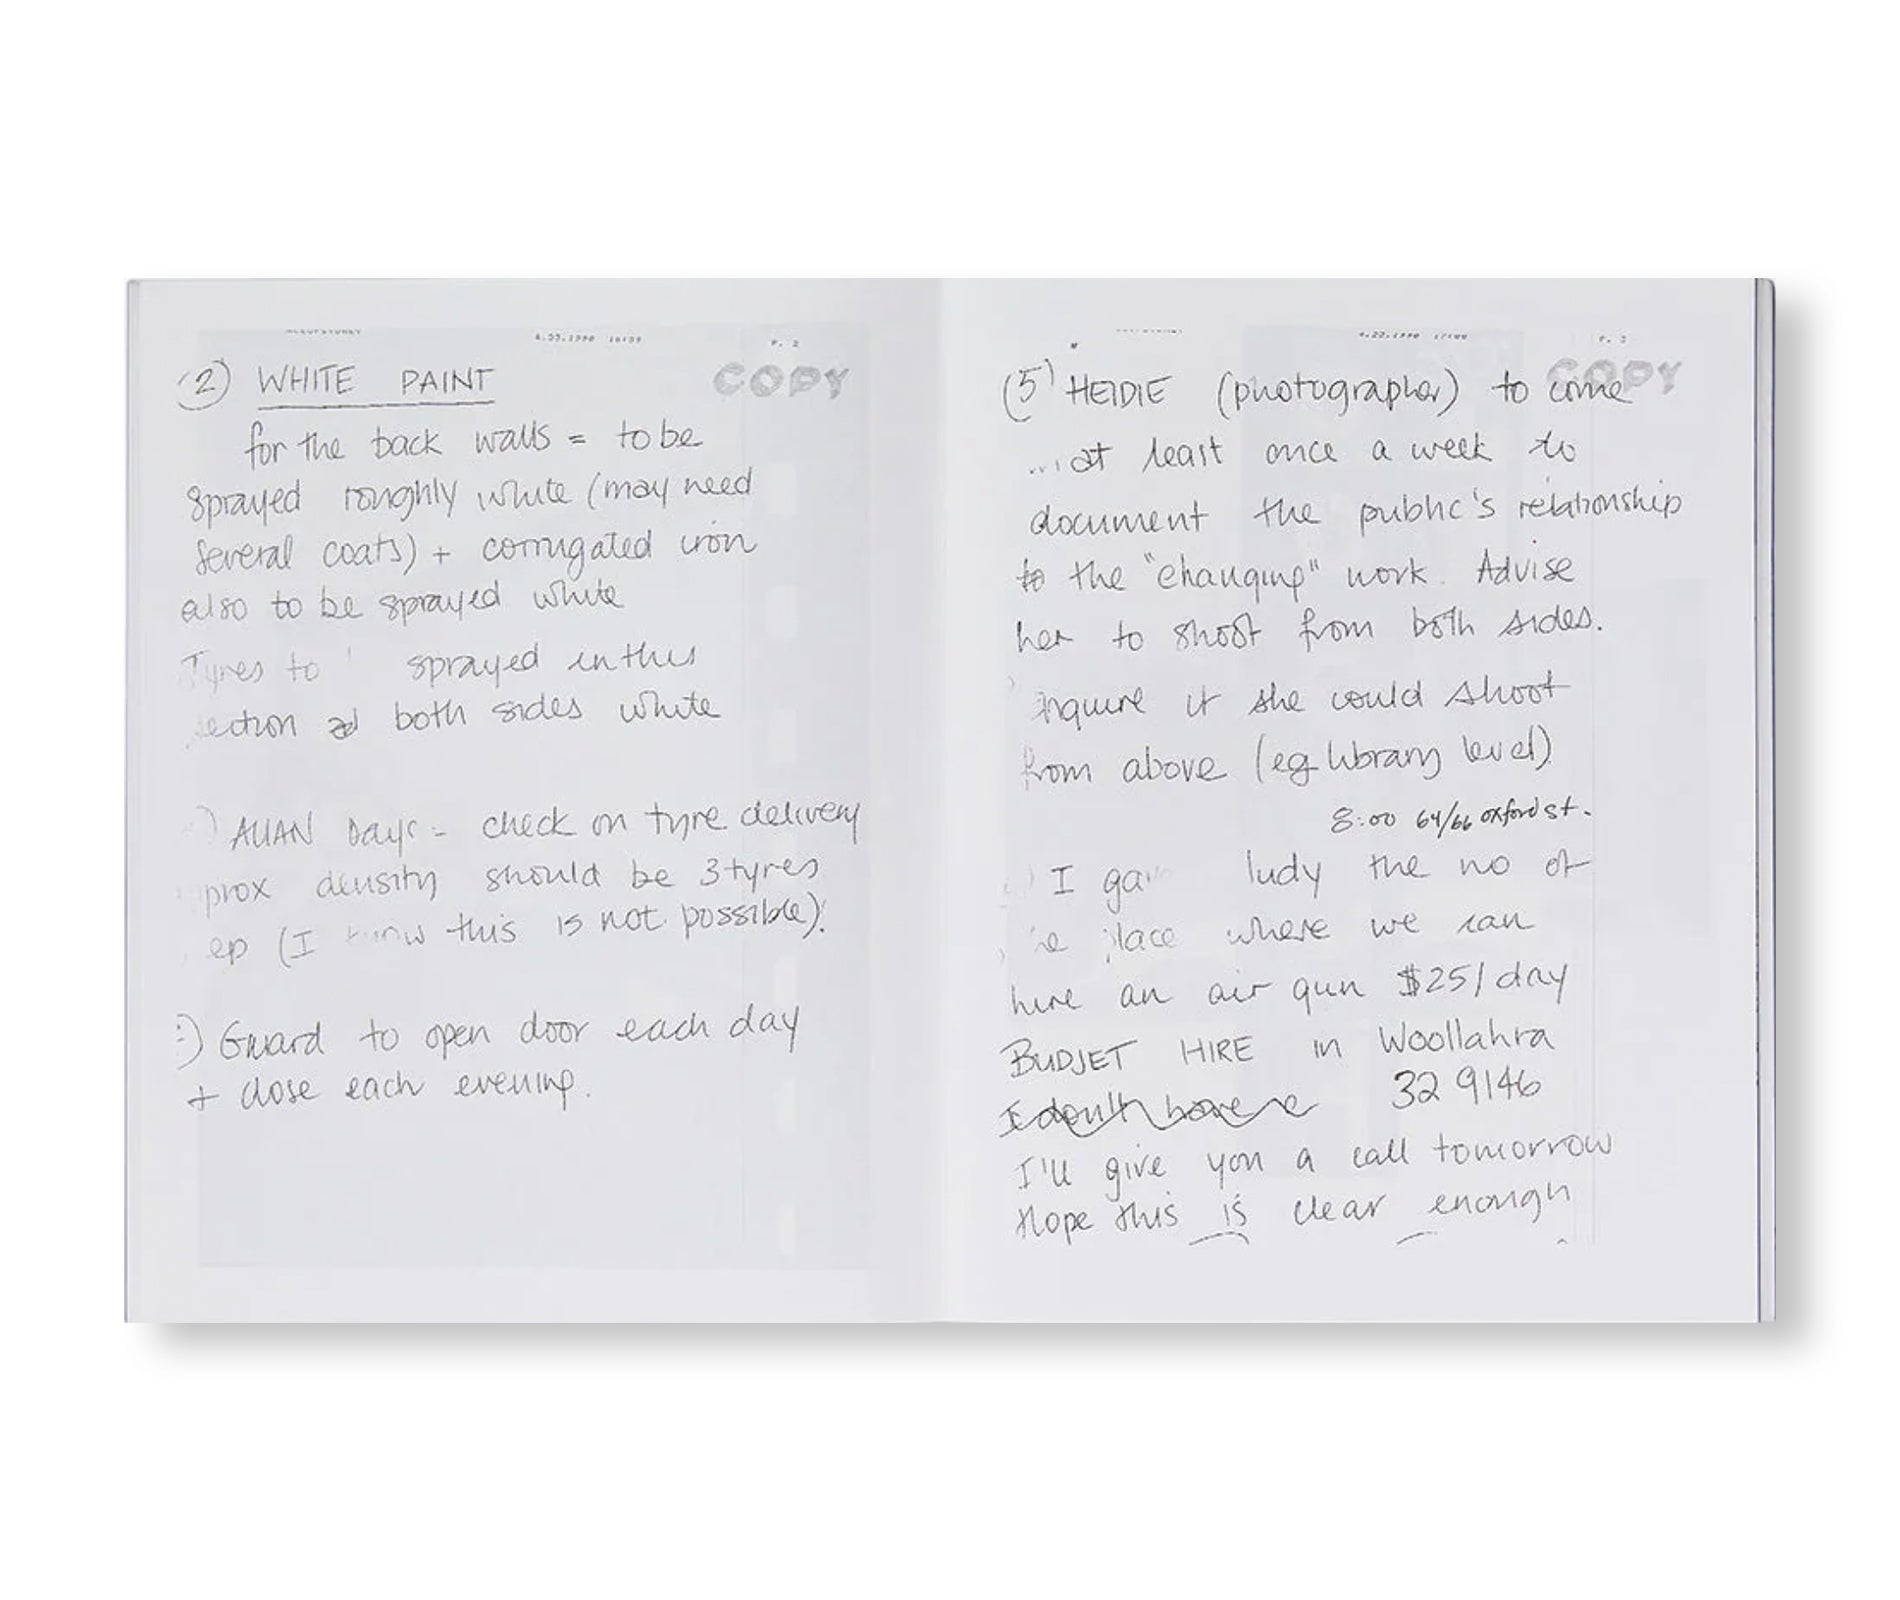 P. 2
COPY
(2) WHITE PAINT
for the back walls = to be
sprayed roughly white (may need
several coats) + corrugated iron
also to be sprayed white
Tyres to sprayed in this
ection both sides white
) ALLAN Days = check on tyre delivery
prox density should be 3 tyres
ep (I know this is not possible).
) Guard to open door each day
+ close each evening.
COPY
(5) HEIDIE (photographer) to come
... at least once a week to
document the public's relationship
to the "changing" work. Advise
her to shoot from both sides.
inquire if she could shoot
from above (eg library level)
8:00 64/66 oxford st.
) I gav ludy the no of
e place where we can
hire an air gun $25/day
BUDJET HIRE in Woollahra
I don't have 32 9146
I'll give you a call tomorrow
Hope this is clear enough